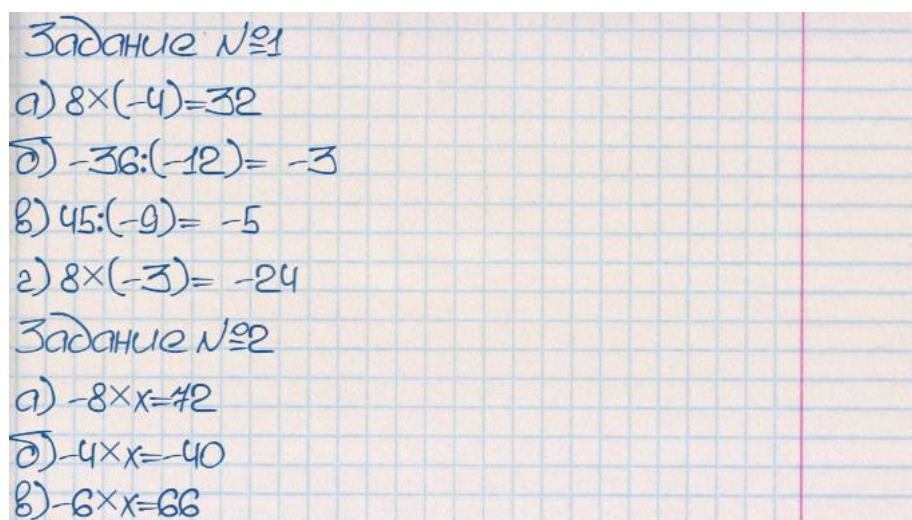 Задание №1
а) 8×(-4)=32
б) -36:(-12)= -3
в) 45:(-9)= -5
г) 8×(-3)= -24
Задание №2
а) -8×x=72
б) -4×x=-40
в) -6×x=66